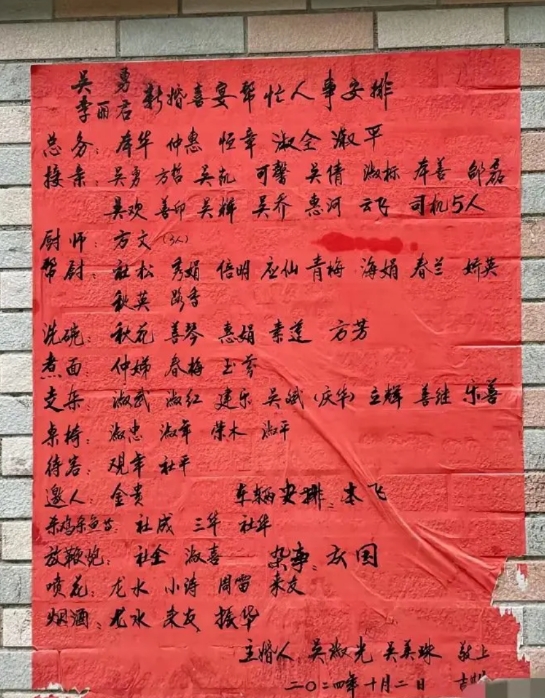 吴 勇
李丽君 新婚喜宴帮忙人事安排
总务：库华 仲惠 恒章 淑全 淑平
接亲：吴勇 方哲 吴凯 可馨 吴倩 淑标 库善 邹磊
吴欢 善印 吴辉 吴乔 惠河 云飞 司机5人
厨师：方文（3人）
帮厨：社松 秀娟 信明 应仙 青梅 海娟 春兰 娇英
秋英
洗碗：秋花 善琴 惠娟 素莲 方芳
煮面：仲娣 春梅 玉芬
支架：淑武 淑红 建乐 吴斌（庆华）立辉 善继 乐善
桌椅：淑忠 淑军 保木 淑平
待客：观军 社平
邀人：金贵 车辆安排：本飞
杀鸡杀鱼：社成 三华 社华
放鞭炮：社全 淑喜 杂事：友国
喷花：龙水 小诗 周富 来友
烟酒：龙水 来友 振华
主婚人 吴淑光 吴美珠 敬上
二〇二四年十月二日